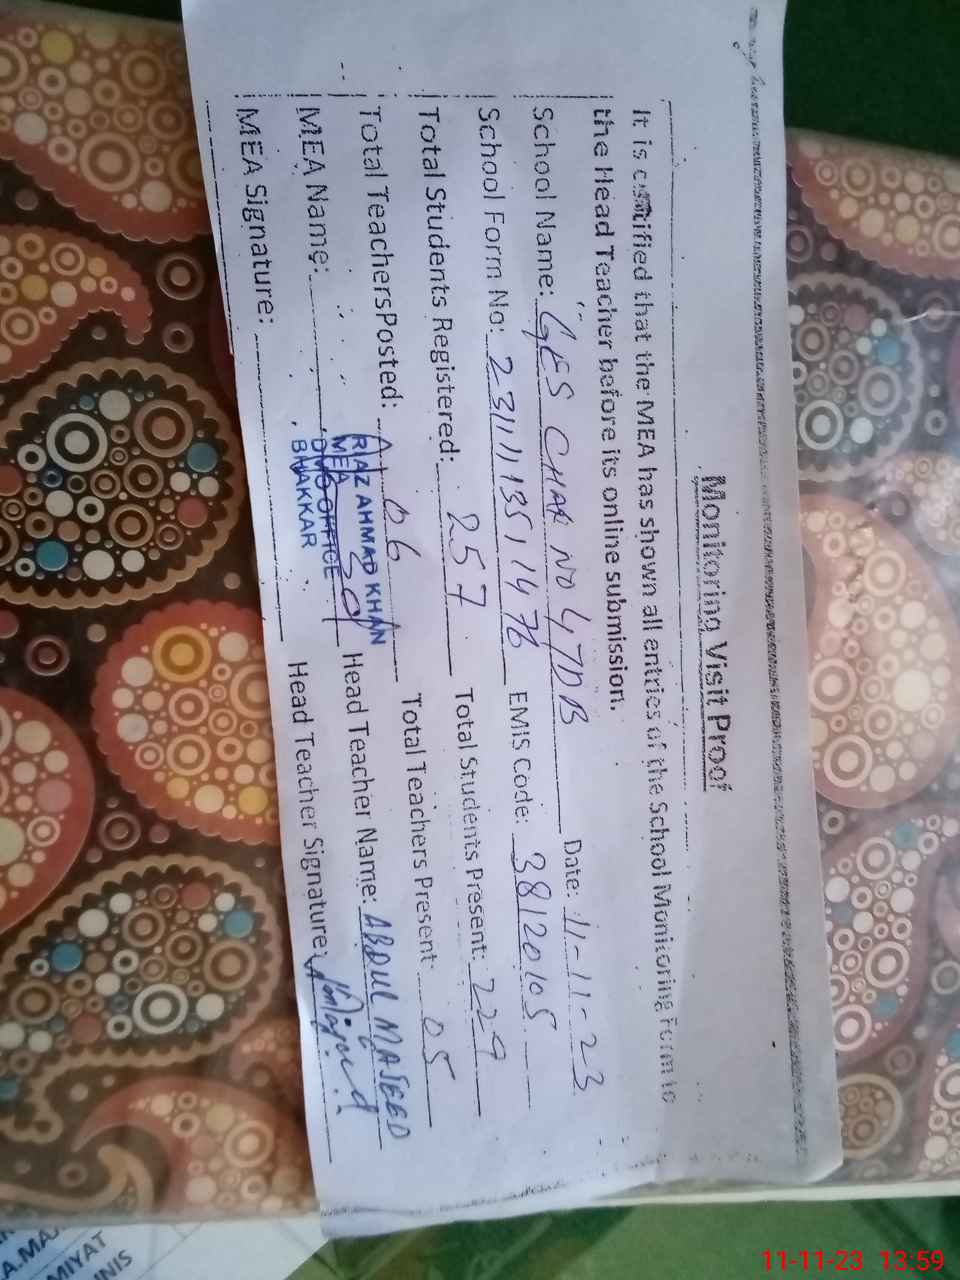 Monitoring Visit Proof
It is certified that the MEA has shown all entries of the School Monitoring Form to
the Head Teacher before its online submission.
School Name: GES CHAK NO 47DB Date: 11-11-23
School Form No: EMIS Code: 38120105
Total Students Registered: 257 Total Students Present: 229
Total TeachersPosted: 06 Total Teachers Present: 05
MEA Name: RIAZ AHMAD KHAN Head Teacher Name: ABDUL MAJEED
MEA
DMO OFFICE
BHAKKAR
MEA Signature: Head Teacher Signature:
MIYAT
NIS
11-11-23 13:59